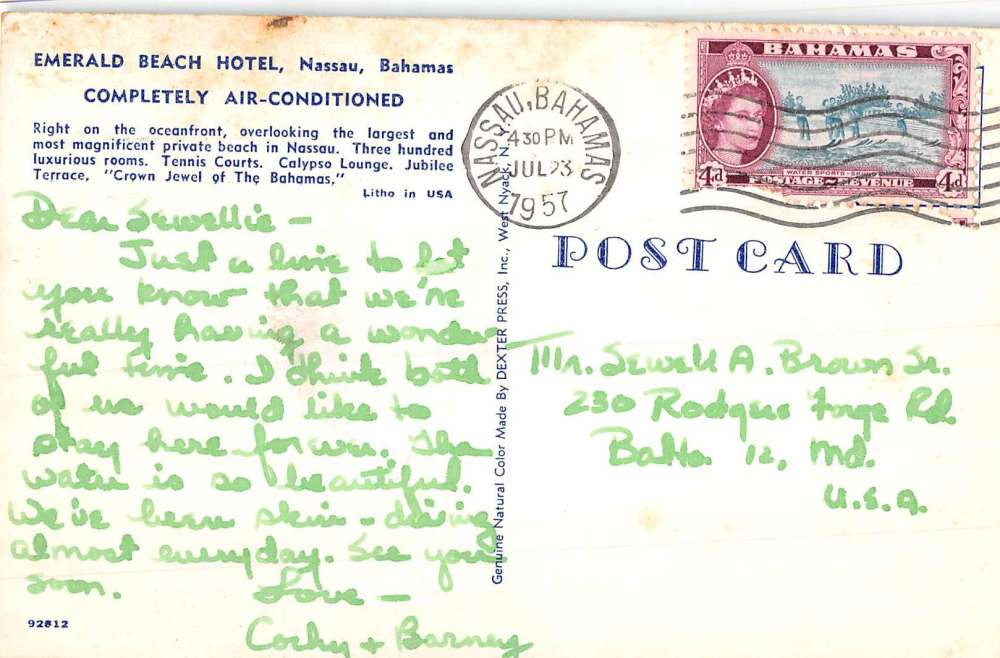 EMERALD BEACH HOTEL, Nassau, Bahamas
COMPLETELY AIR-CONDITIONED
Right on the oceanfront, overlooking the largest and
most magnificent private beach in Nassau. Three hundred
luxurious rooms. Tennis Courts. Calypso Lounge. Jubilee
Terrace, "Crown Jewel of The Bahamas."
Litho in USA
Dear Sewellie -
Just a line to let
you know that we're
really having a wonder-
ful time. I think both
of us would like to
stay here forever. The
water is so beautiful.
We've been skin-diving
almost everyday. See you
soon.
Love -
Corky + Barney
92812
Genuine Natural Color Made By DEXTER PRESS, Inc., West Nyack, N.Y.
NASSAU, BAHAMAS
4 30 PM
JUL 23
1957
BAHAMAS
WATER SPORTS
POSTAGE REVENUE
4d
4d
POST CARD
Mr. Sewell A. Brown Sr.
230 Rodgers Forge Rd.
Balto. 12, Md.
U.S.A.